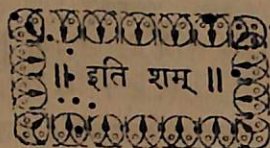 ॥ इति शम् ॥